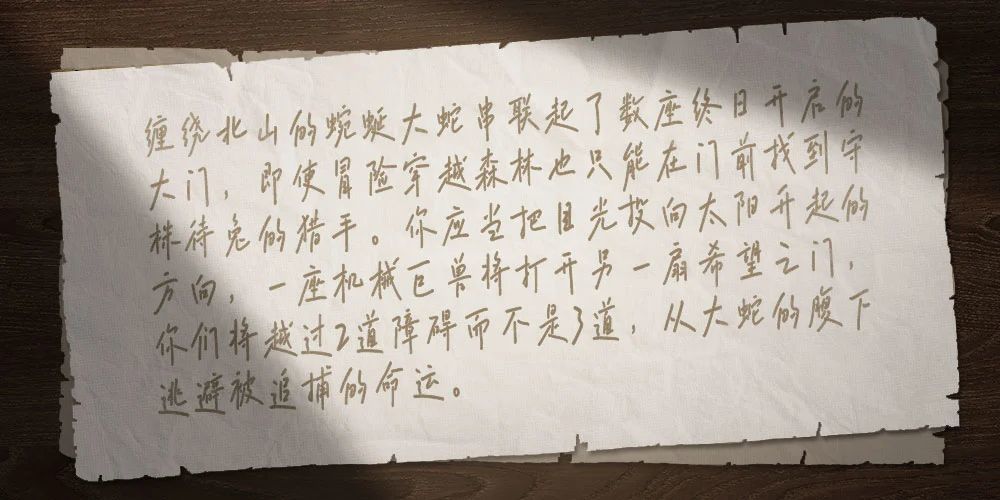 缠绕北山的蜿蜒大蛇串联起了数座终日开启的
大门，即使冒险穿越森林也只能在门前找到守
株待兔的猎手。你应当把目光投向太阳升起的
方向，一座机械巨兽将打开另一扇希望之门，
你们将越过2道障碍而不是3道，从大蛇的腹下
逃避被追捕的命运。